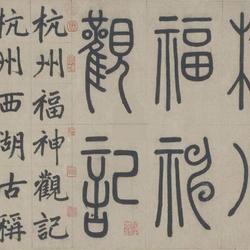 杭州
福神
觀記
杭州福神觀記
杭州西湖古稱